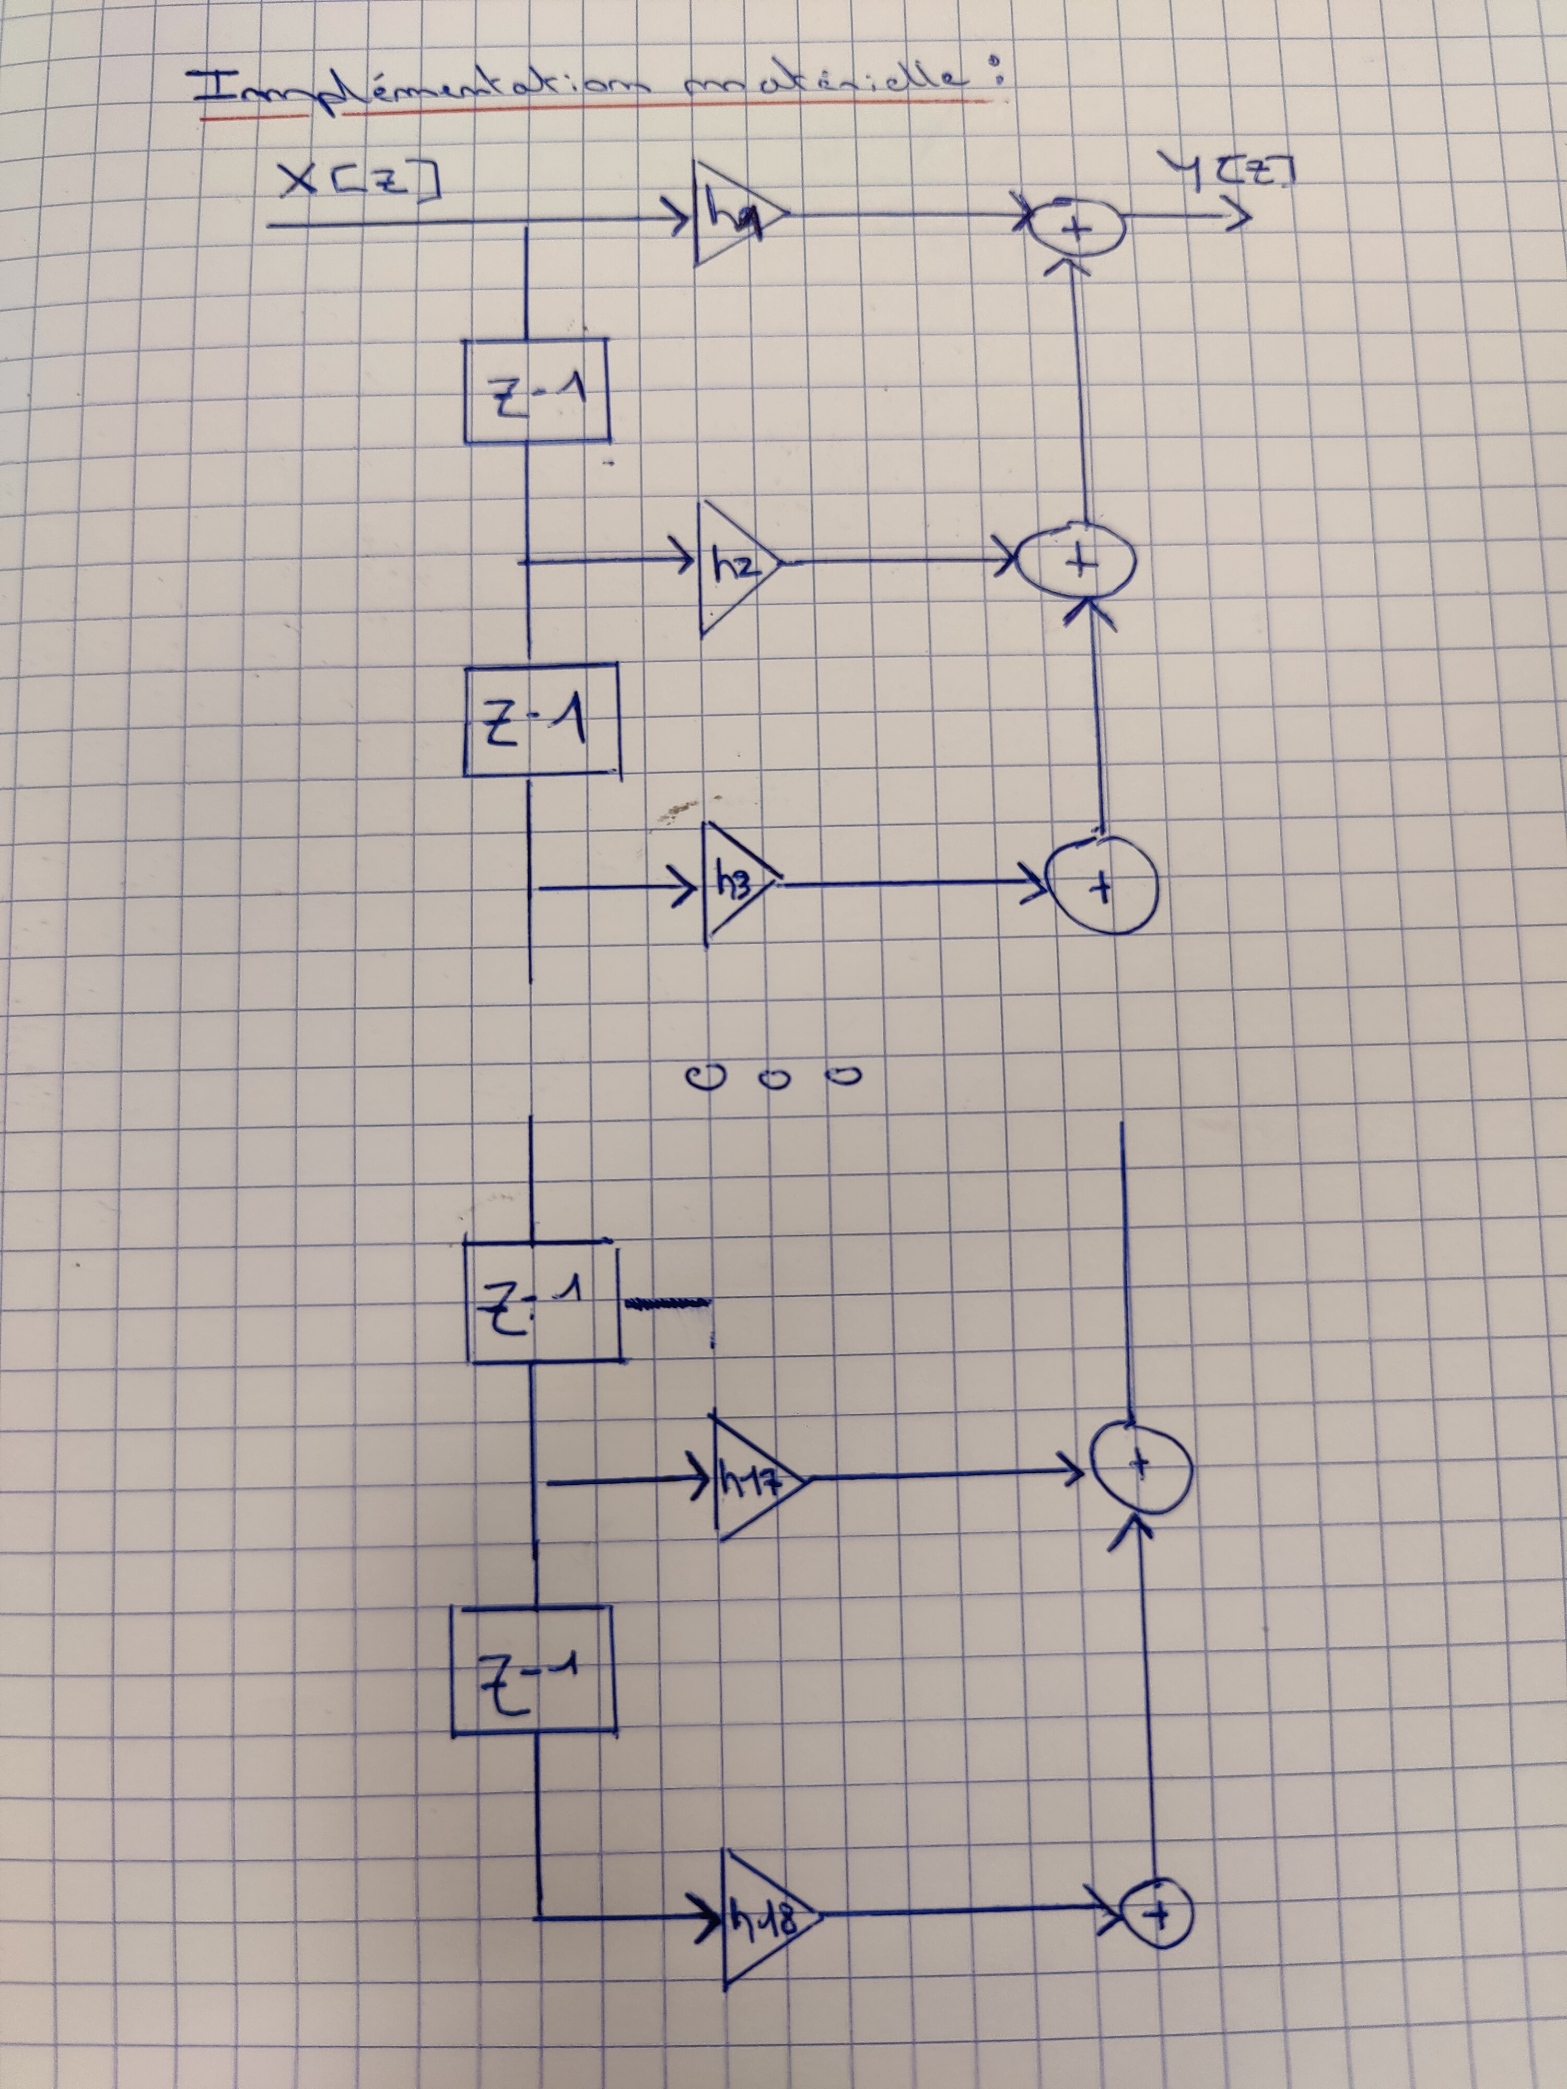 Implémentation matérielle :
X[Z]
h1
+
Y[Z]
Z-1
h2
+
Z-1
h3
+
Z-1
h17
+
Z-1
h18
+